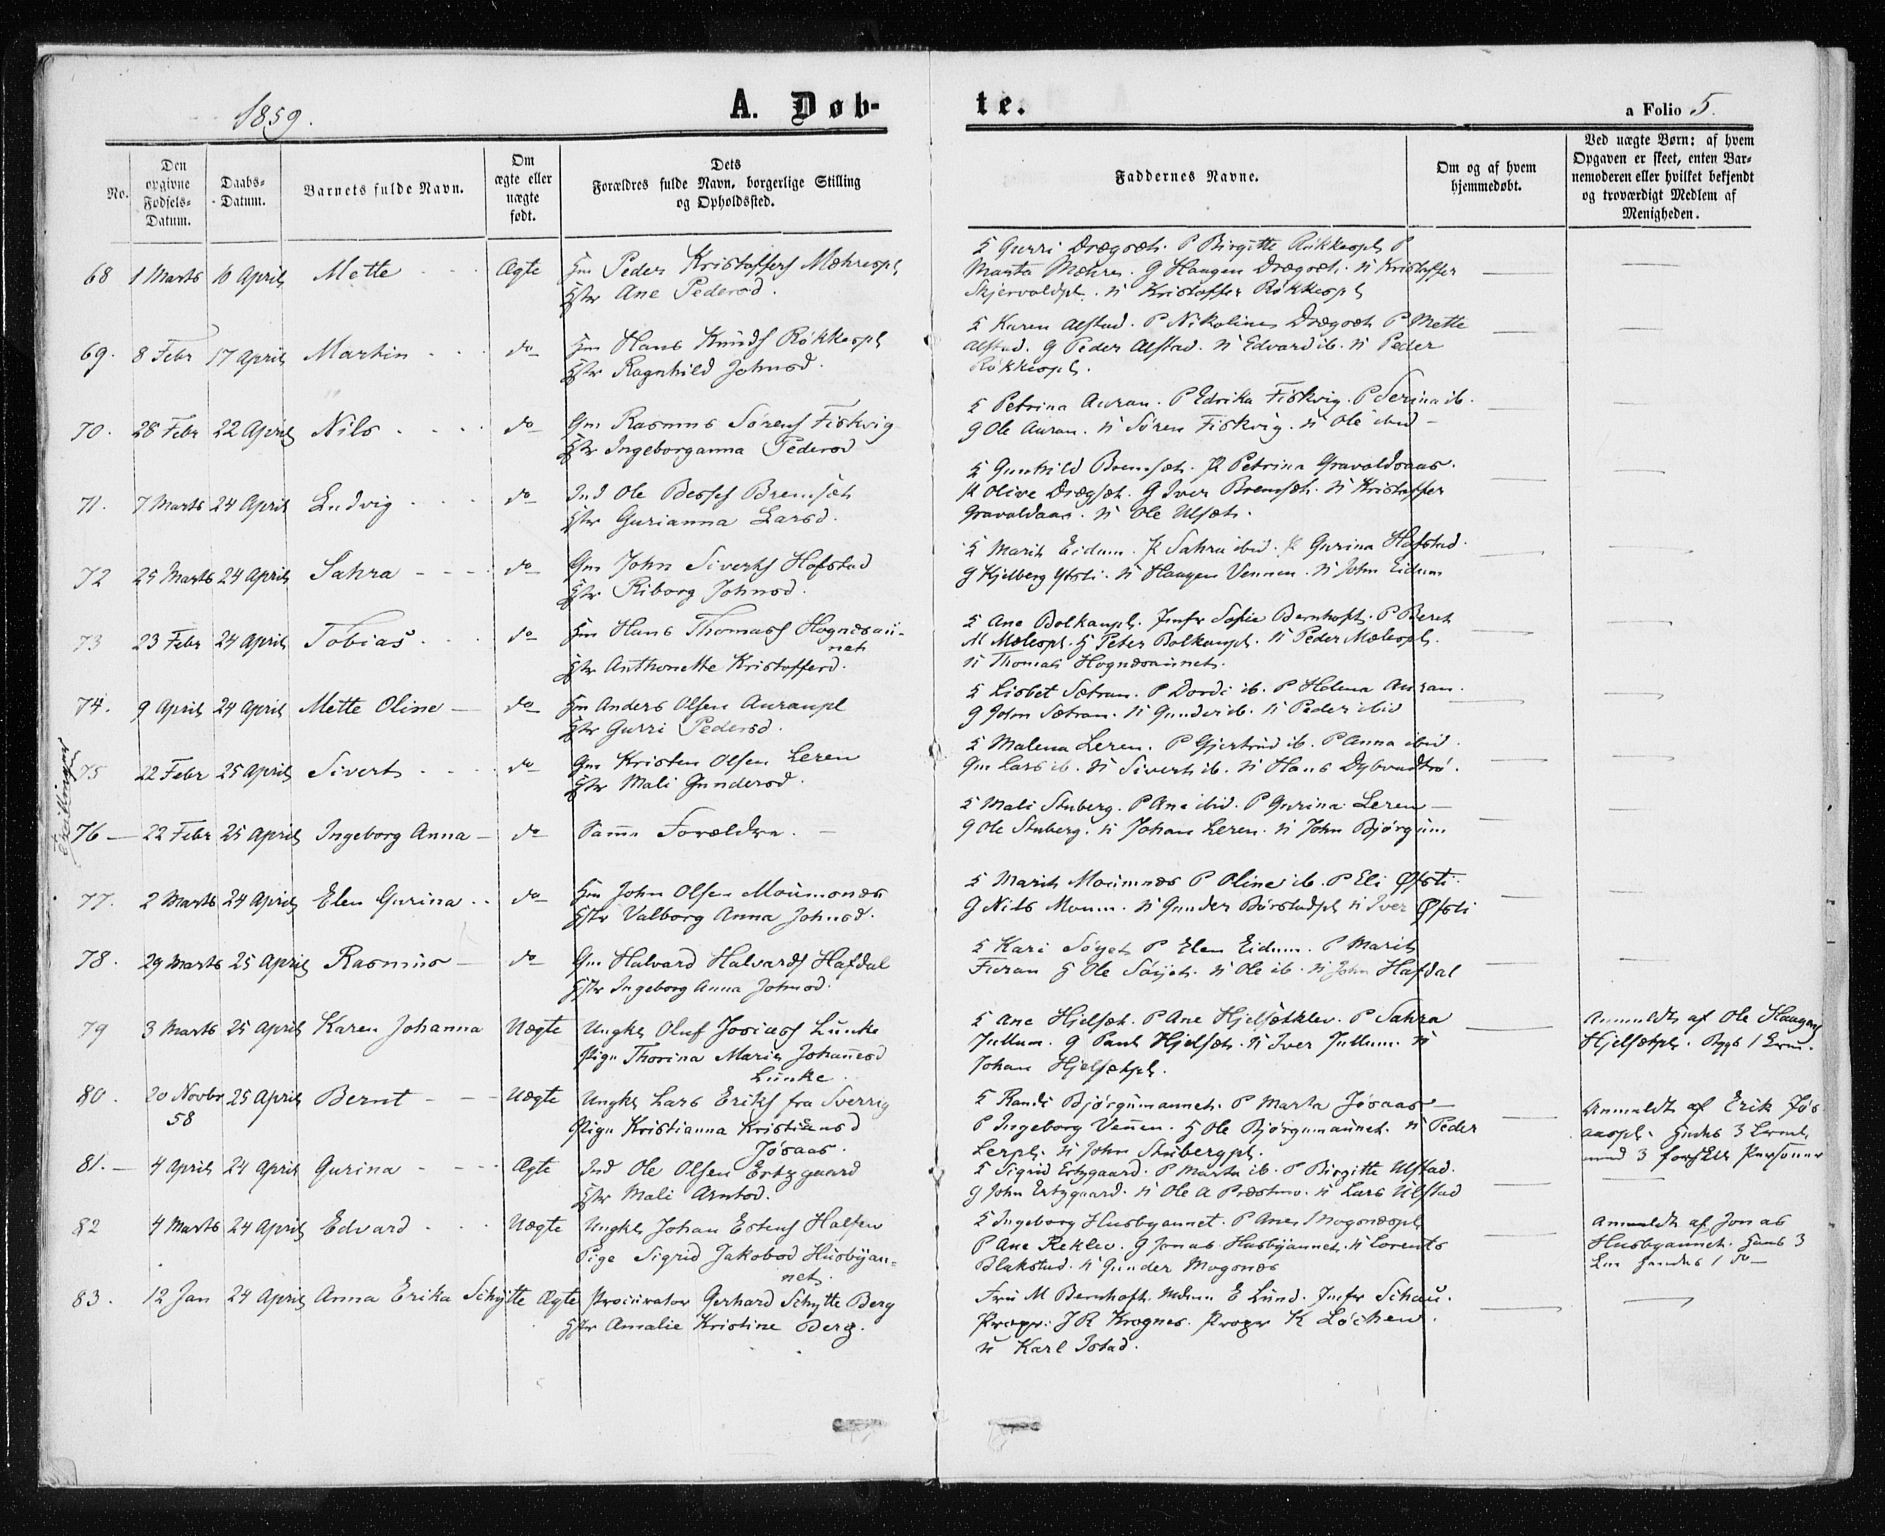 1859.
A. Døb-
te.
a Folio 5.
No.
Den
opgivne
Fødsels-
Datum.
Daabs-
Datum.
Barnets fulde Navn.
Om
ægte eller
uægte
født.
Dets
Forældres fulde Navn, borgerlige Stilling
og Opholdssted.
Faddernes Navne.
Om og af hvem
hjemmedøbt.
Ved uægte Børn: af hvem
Opgaven er skeet, enten Bar-
nemoderen eller hvilket bekjendt
og troværdigt Medlem af
Menigheden.
68 1 Marts 10 April Mette Ægte Hm Peder Kristoffers Mæhrespl
Hstr Ane Pedersd.
K Gurri Drægset. P Birgitte Røkkespl P
Marta Mæhre. G Haagen Drægset. N Kristoffer
Skjervoldpl. N Kristoffer Røkkespl
69. 8 Febr 17 April Martin do Hm Hans Knuds Røkkespl
Hstr Ragnhild Johnsd.
K Karen Alstad. P Nikoline Drægset P Mette
Alstad. G Peder Alstad. N Edvard ib. N Peder
Røkkespl.
70. 28 Febr 22 April Nils do Gm Rasmus Sørens Fiskvig
Hstr Ingeborganna Pedersd
K Petrina Auran. P Edrika Fiskvig. P Serina ib.
G Ole Auran. N Søren Fiskvig. N Ole ibid
71. 7 Marts 24 April Ludvig do Ind Ole Bersf Bremset
Hstr Gurianna Larsd.
K Gunhild Bremset. P Petrina Gravaldsaas.
P Olive Drægset. G Iver Bremset. N Kristoffer
Gravaldaas. N Ole Ulset.
72 25 Marts 24 April Sahra do Gm John Siverts Hofstad
Hstr Riborg Johnsd.
K Marit Eidum. P Sahra ibid. P Gurina Hofstad.
G Kjelberg Ystti. N Haagen Vennen. N John Eidum
73 23 Febr 24 April Tobias do Hm Hans Thomass Hognesau-
net
Hstr Anthonette Kristofferd.
K Ane Bolkanpl. Jmfr Sofie Bernhoft. P Beret
M Mælespl. G Peter Bolkanpl. N Peder Mælespl.
N Thomas Hognesaunet.
74. 9 April 24 April Mette Oline do Hm Anders Olsen Auranpl
Hstr Gurri Pedersd.
K Lisbet Sætran. P Dordi ib. P Helena Auran.
G John Sætran. N Gunder ib. N Peder ibid
Tvillinger
75 22 Febr 25 April Sivert do Gm Kristen Olsen Leren
Hstr Mali Gundersd.
K Malena Leren. P Gjertrud ib. P Anna ibid.
Gm Lars ib. N Sivert ib. N Hans Dybvadtrø.
76 22 Febr 25 April Ingeborg Anna do Samme Forældre.
K Mali Stuberg. P Ane ibid. P Gurina Leren
G Ole Stuberg. N Johan Leren. N John Bjørgum
77. 2 Marts 24 April Elen Gurina do Hm John Olsen Moumsnæs
Hstr Valborg Anna Johnsd.
K Marit Moumnæs P Oline ib. P Eli Øfsti.
G Nils Moum. N Gunder Børstadpl N Iver Øfsti
78. 29 Marts 25 April Rasmus do Gm Halvard Halvards Hafdal
Hstr Ingeborg Anna Johnsd.
K Kari Søyet P Elen Eidum. P Marit
Furan G Ole Søyet. N Ole ib. N John Hafdal
79 3 Marts 25 April Karen Johanna Uægte Ungkl Oluf Josiass Lunke
Pige Thorina Marie Johannesd
Lunke.
K Ane Hjelset. P Ane Hjelsetklev. P Sahra
Jullum. G Paul Hjelset. N Iver Jullum. N
Johan Hjelsetpl.
Anmeldt af Ole Haagens
Hjelsetpl. Bygs 1 Erm.
80. 20 Novbr 25 April Bernt Uægte Ungkl Lars Eriks fra Sverrig
58
Pige Kristianna Kristiansd
Jøsaas.
K Randi Bjørgumaunet. P Marta Jøsaas
P Ingeborg Vennen. G Ole Bjørgumaunet. N Peder
Lerpl. N John Stubergpl.
Anmeldt af Erik Jøs
aaspl. Hendes 3 Lerm
med 3 forskll Personer
81. 4 April 24 April Gurina Ægte Ind Ole Olsen Ertzgaard
Hstr Mali Arntsd.
K Sigrid Ertzgaard. P Marta ib. P Birgitte Ulstad.
G John Ertzgaard. N Ole A Præstmo. N Lars Ulstad
82 4 Marts 24 April Edvard Uægte Ungkl Johan Estens Halsen
Pige Sigrid Jakobsd Husbyau-
net.
K Ingeborg Husbyaunet. P Ane Mogsnespl
P Ane Reklev. G Jonas Husbyaunet. N Lorents
Blakstad. N Gunder Mogsnæs
Anmeldt af Jonas
Husbyaunet. Hans 3
Lm Hendes 1 do
83. 12 Jan 24 April Anna Erika Schytte Ægte Procurator Gerhard Schytte Berg
Hstr Amalie Kristine Berg.
Fru M Bernhoft. Mdm E Lund. Jmfr Schau.
Propr. J R Krognes. Propr K Løchen.
N Karl Jostad.